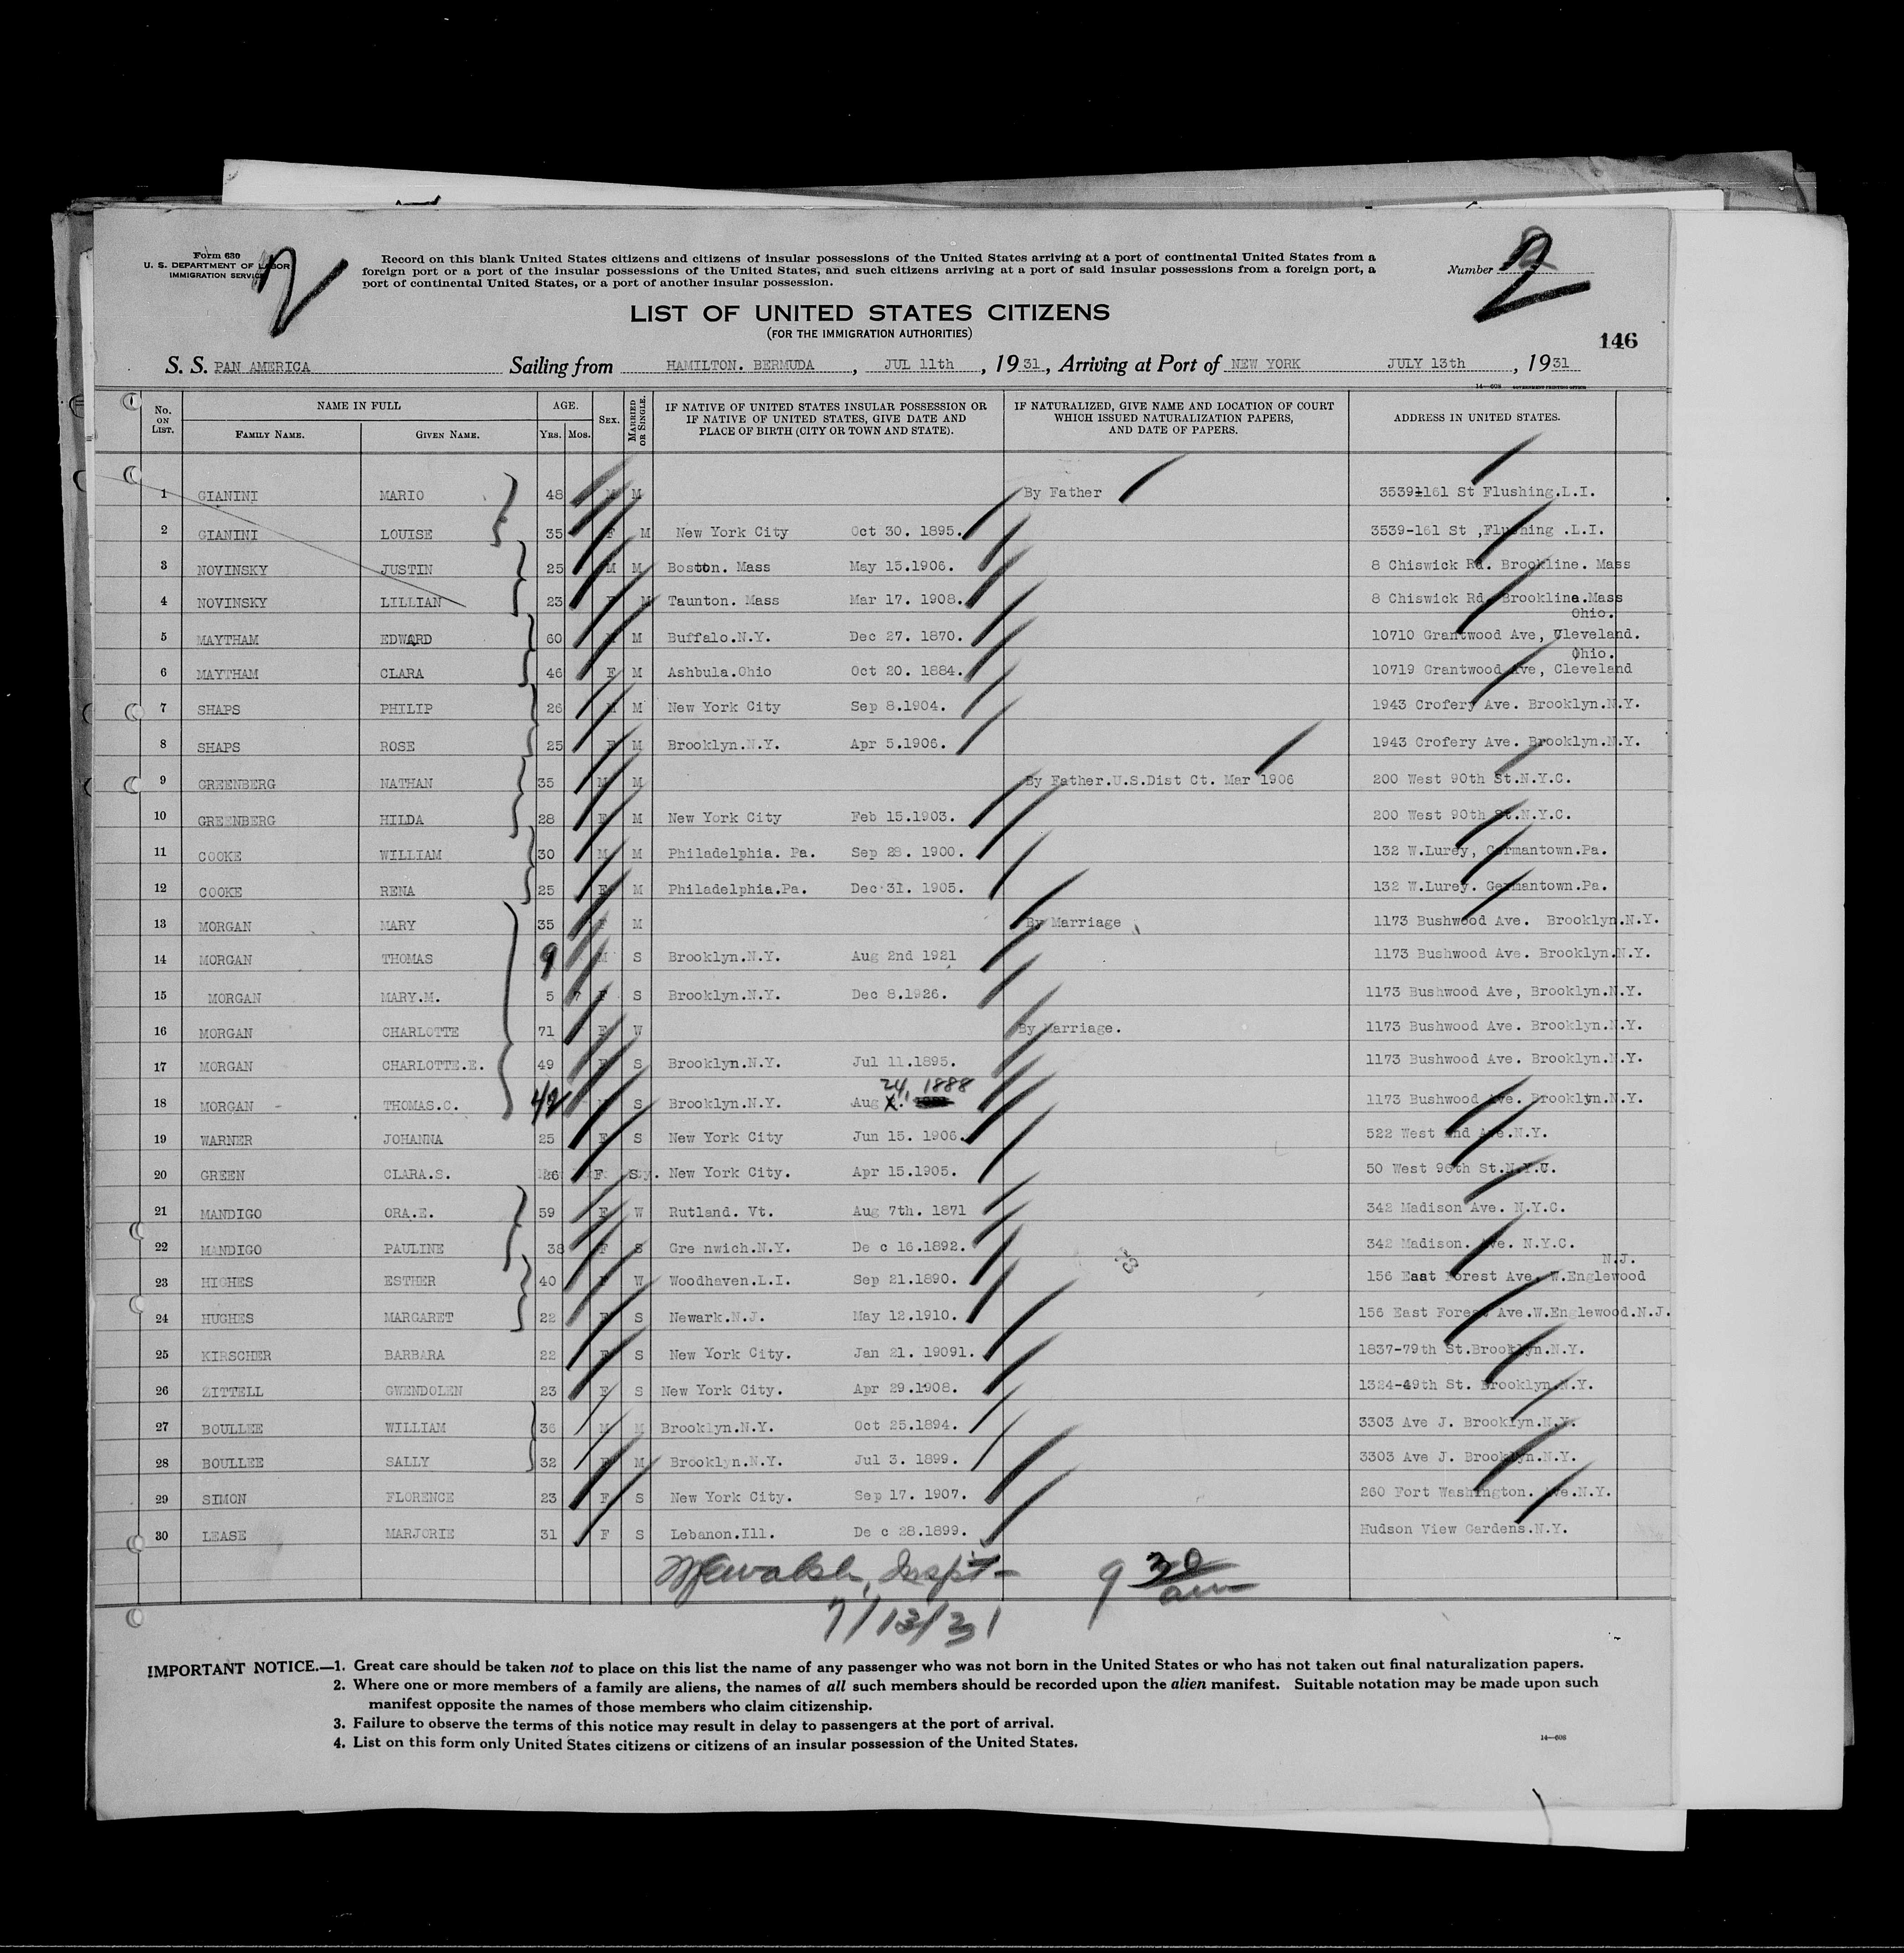 Form 630
U. S. DEPARTMENT OF LABOR
IMMIGRATION SERVICE
2
Record on this blank United States citizens and citizens of insular possessions of the United States arriving at a port of continental United States from a
foreign port or a port of the insular possessions of the United States, and such citizens arriving at a port of said insular possessions from a foreign port, a
port of continental United States, or a port of another insular possession.
Number 2
LIST OF UNITED STATES CITIZENS
(FOR THE IMMIGRATION AUTHORITIES)
146
S. S. PAN AMERICA Sailing from HAMILTON. BERMUDA, JUL 11th, 1931, Arriving at Port of NEW YORK JULY 13th, 1931
14—608 GOVERNMENT PRINTING OFFICE
No. ON LIST. NAME IN FULL FAMILY NAME. GIVEN NAME. AGE. YRS. MOS. SEX. MARRIED OR SINGLE. IF NATIVE OF UNITED STATES INSULAR POSSESSION OR IF NATIVE OF UNITED STATES, GIVE DATE AND PLACE OF BIRTH (CITY OR TOWN AND STATE). IF NATURALIZED, GIVE NAME AND LOCATION OF COURT WHICH ISSUED NATURALIZATION PAPERS, AND DATE OF PAPERS. ADDRESS IN UNITED STATES.
1 GIANINI MARIO 48 M M By Father 3539-161 St Flushing.L.I.
2 GIANINI LOUISE 35 F M New York City Oct 30. 1895. 3539-161 St ,Flushing .L.I.
3 NOVINSKY JUSTIN 25 M M Boston. Mass May 15.1906. 8 Chiswick Rd. Brookline. Mass
4 NOVINSKY LILLIAN 23 F M Taunton. Mass Mar 17. 1908. 8 Chiswick Rd. Brookline.Mass
Ohio.
5 MAYTHAM EDWARD 60 M M Buffalo.N.Y. Dec 27. 1870. 10710 Grantwood Ave, Cleveland.
Ohio.
6 MAYTHAM CLARA 46 F M Ashbula.Ohio Oct 20. 1884. 10719 Grantwood Ave, Cleveland
7 SHAPS PHILIP 26 M M New York City Sep 8.1904. 1943 Crofery Ave. Brooklyn.N.Y.
8 SHAPS ROSE 25 F M Brooklyn.N.Y. Apr 5.1906. 1943 Crofery Ave. Brooklyn.N.Y.
9 GREENBERG NATHAN 35 M M By Father.U.S.Dist Ct. Mar 1906 200 West 90th St.N.Y.C.
10 GREENBERG HILDA 28 F M New York City Feb 15.1903. 200 West 90th St.N.Y.C.
11 COOKE WILLIAM 30 M M Philadelphia. Pa. Sep 28. 1900. 132 W.Lurey, Germantown.Pa.
12 COOKE RENA 25 F M Philadelphia.Pa. Dec 31. 1905. 132 W.Lurey. Germantown.Pa.
13 MORGAN MARY 35 F M By Marriage 1173 Bushwood Ave. Brooklyn.N.Y.
14 MORGAN THOMAS 9 M S Brooklyn.N.Y. Aug 2nd 1921 1173 Bushwood Ave. Brooklyn.N.Y.
15 MORGAN MARY.M. 5 7 F S Brooklyn.N.Y. Dec 8.1926. 1173 Bushwood Ave, Brooklyn.N.Y.
16 MORGAN CHARLOTTE 71 F W By Marriage. 1173 Bushwood Ave. Brooklyn.N.Y.
17 MORGAN CHARLOTTE.E. 49 F S Brooklyn.N.Y. Jul 11.1895. 1173 Bushwood Ave. Brooklyn.N.Y.
18 MORGAN THOMAS.C. 42 S Brooklyn.N.Y. Aug 24, 1888 1173 Bushwood Ave. Brooklyn.N.Y.
19 WARNER JOHANNA 25 F S New York City Jun 15. 1906. 522 West End Ave.N.Y.
20 GREEN CLARA.S. 26 F S New York City. Apr 15.1905. 50 West 96th St.N.Y.C.
21 MANDIGO ORA.E. 59 F W Rutland. Vt. Aug 7th. 1871 342 Madison Ave. N.Y.C.
22 MANDIGO PAULINE 38 F S Gre nwich.N.Y. De c 16.1892. 342 Madison. Ave. N.Y.C.
N.J.
23 HIGHES ESTHER 40 F W Woodhaven.L.I. Sep 21.1890. 156 East Forest Ave. W.Englewood
24 HUGHES MARGARET 22 F S Newark.N.J. May 12.1910. 156 East Forest Ave.W.Englewood.N.J.
25 KIRSCHER BARBARA 22 F S New York City. Jan 21. 19091. 1837-79th St.Brooklyn.N.Y.
26 ZITTELL GWENDOLEN 23 F S New York City. Apr 29.1908. 1324-49th St. Brooklyn.N.Y.
27 BOULLEE WILLIAM 36 M M Brooklyn.N.Y. Oct 25.1894. 3303 Ave J. Brooklyn.N.Y.
28 BOULLEE SALLY 32 F M Brooklyn.N.Y. Jul 3. 1899. 3303 Ave J. Brooklyn.N.Y.
29 SIMON FLORENCE 23 F S New York City. Sep 17. 1907. 260 Fort Washington. Ave.N.Y.
30 LEASE MARJORIE 31 F S Lebanon.Ill. De c 28.1899. Hudson View Gardens.N.Y.
Walsh, Inspt- 9 30 am
7/13/31
IMPORTANT NOTICE.—1. Great care should be taken not to place on this list the name of any passenger who was not born in the United States or who has not taken out final naturalization papers.
2. Where one or more members of a family are aliens, the names of all such members should be recorded upon the alien manifest. Suitable notation may be made upon such
manifest opposite the names of those members who claim citizenship.
3. Failure to observe the terms of this notice may result in delay to passengers at the port of arrival.
4. List on this form only United States citizens or citizens of an insular possession of the United States.
14—608